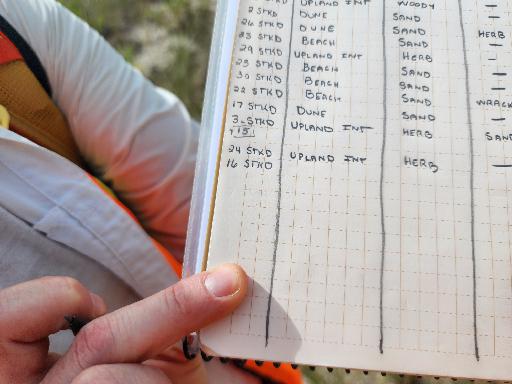 STKD UPLAND INT WOODY —
2 STKD DUNE SAND —
26 STKD DUNE SAND HERB
23 STKD BEACH SAND —
29 STKD UPLAND INT HERB —
25 STKD BEACH SAND —
30 STKD BEACH SAND —
22 STKD BEACH SAND WRACK
17 STKD DUNE SAND —
3 STKD UPLAND INT HERB SAND
15
24 STKD
16 STKD UPLAND INT HERB —